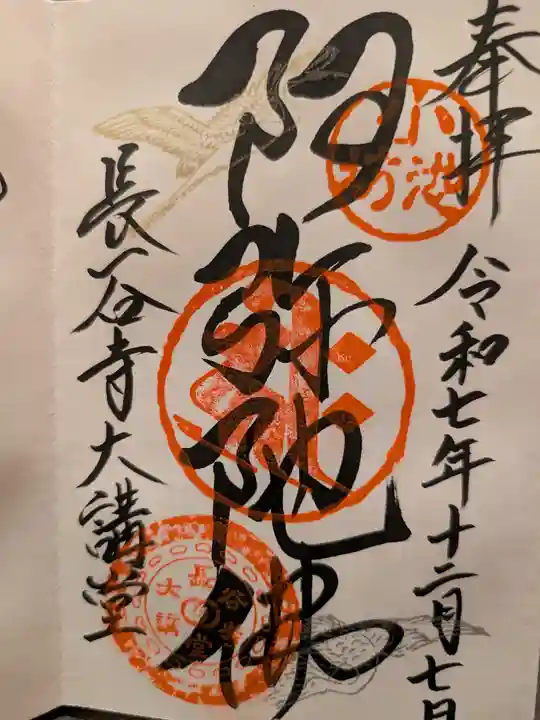 奉拝
令和七年十二月七日
小池坊
阿弥陀佛
長谷寺大講堂
長谷寺
大講堂